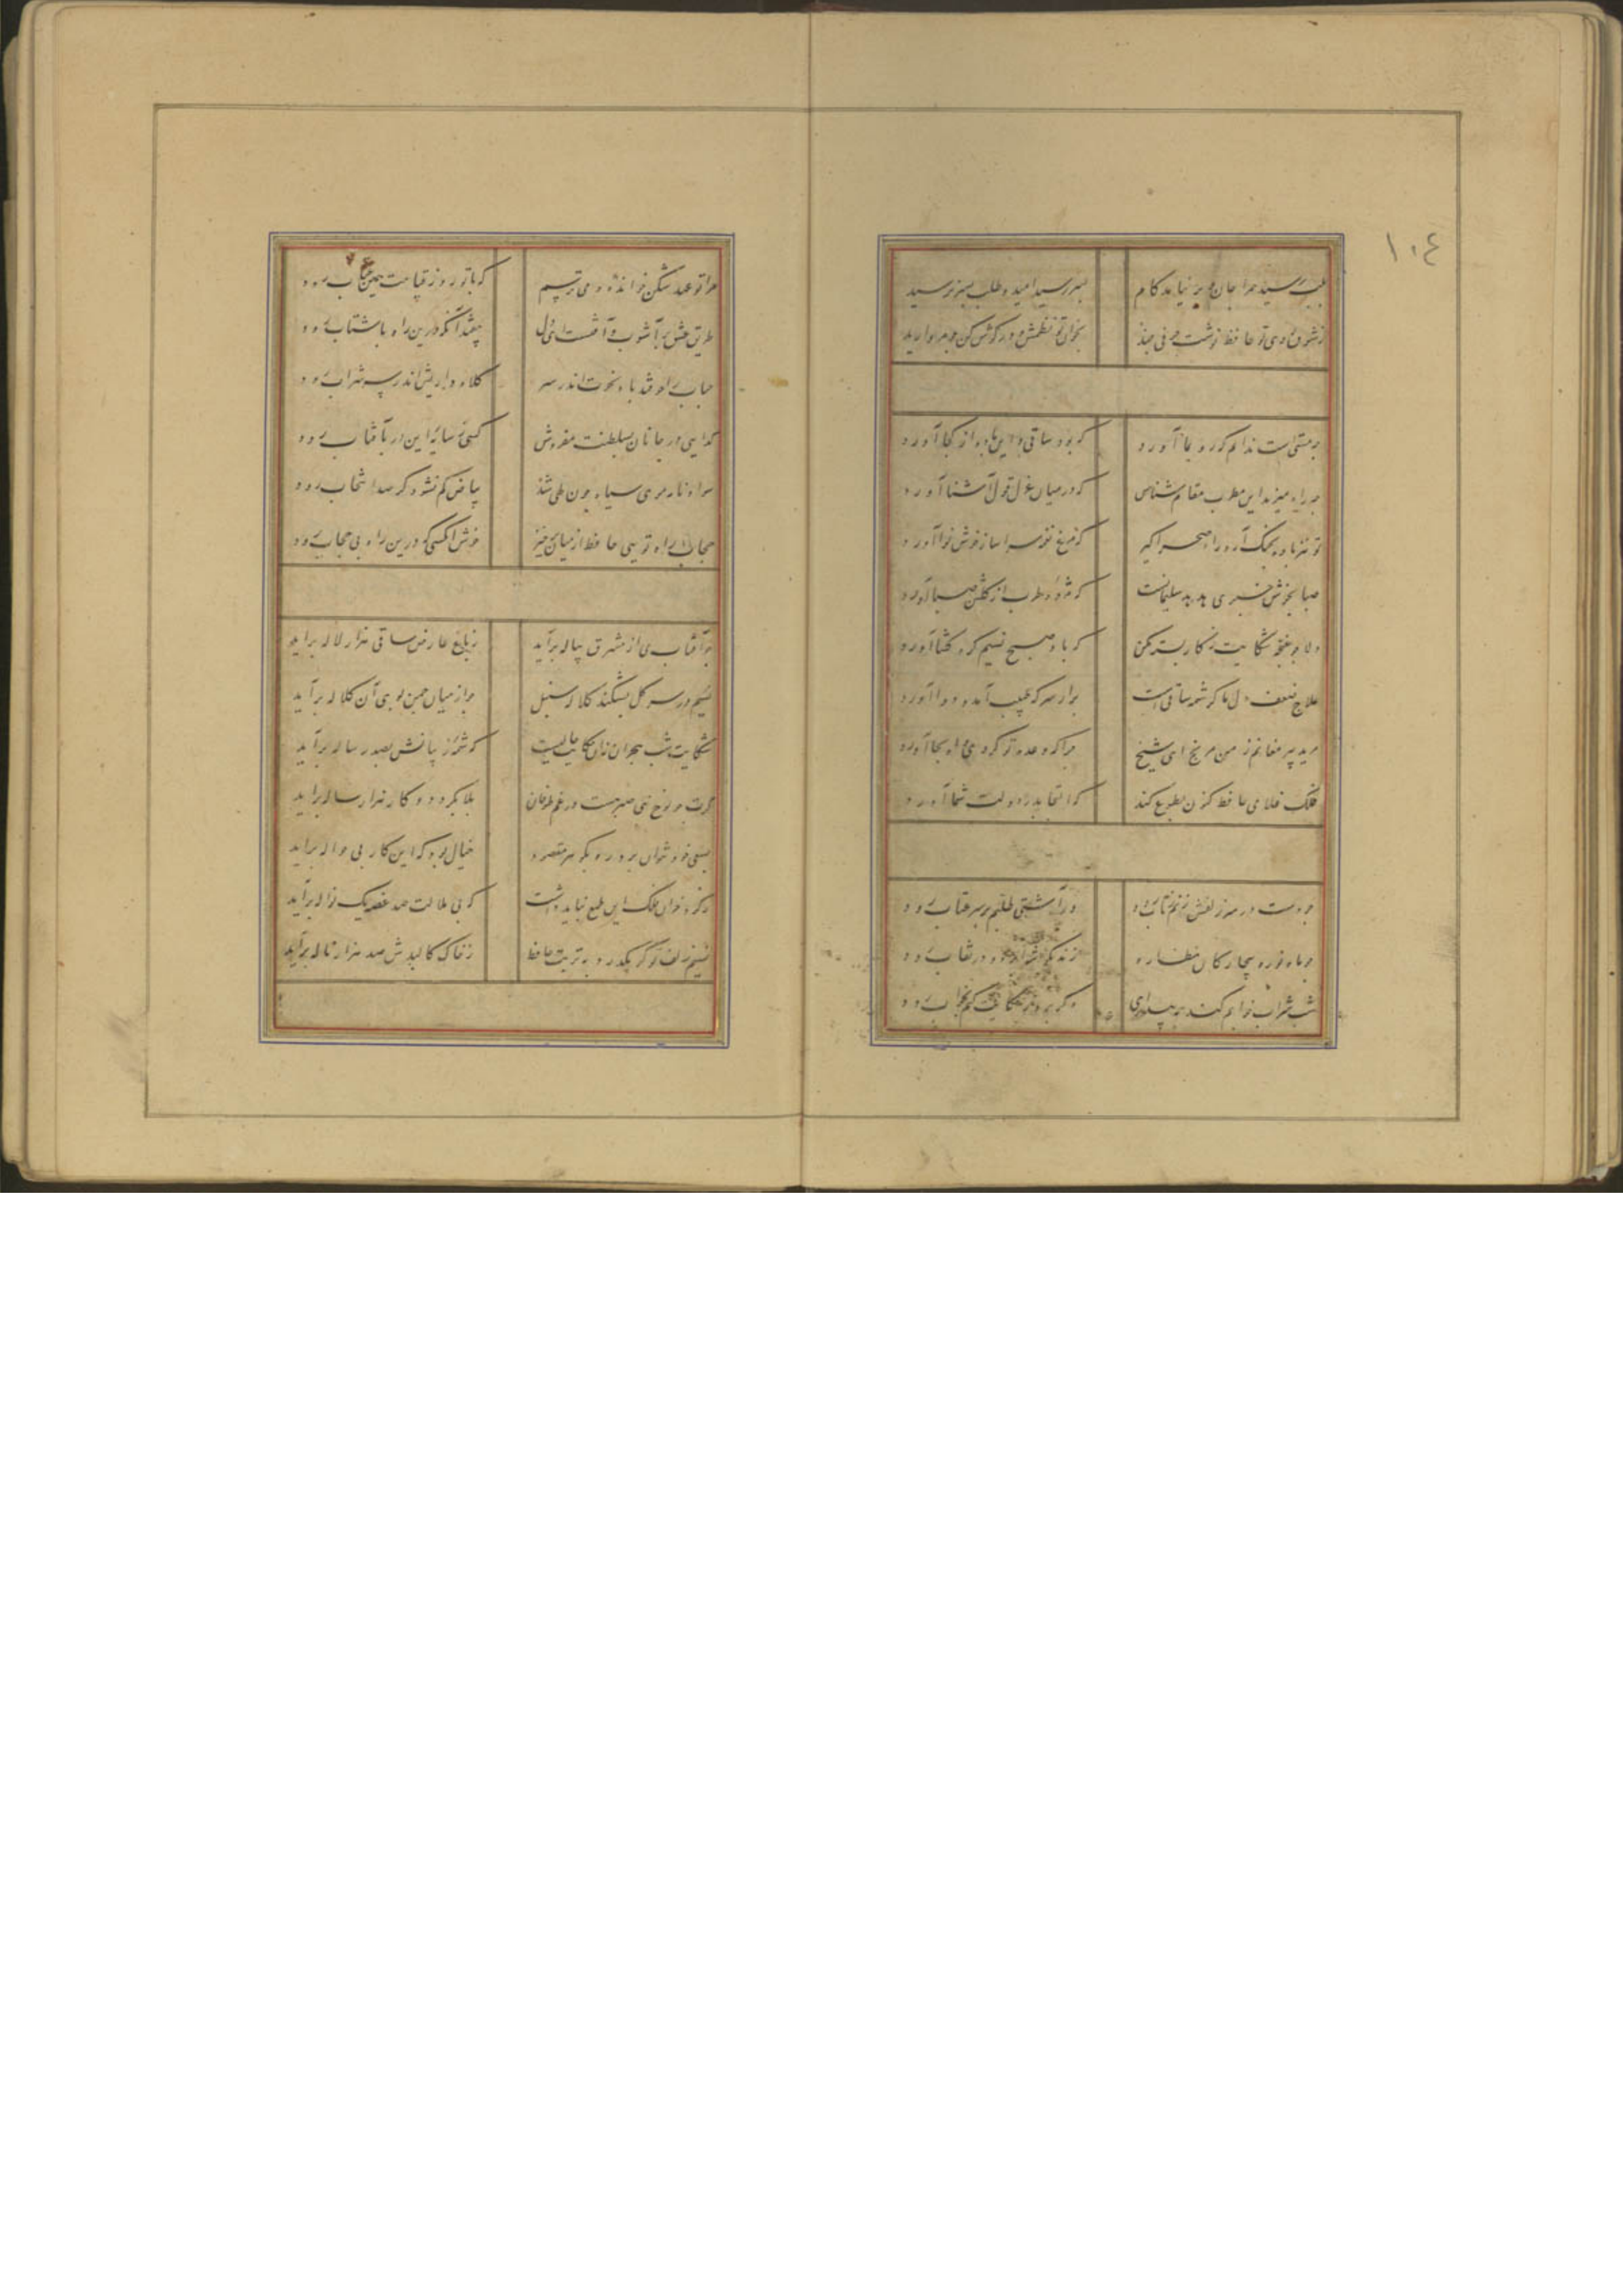 ١٠٤
بلب رسید مرا جان و بر نیامد کام بسر رسید امید و طلب بسر نرسید
ز شوق روی تو حافظ نوشت حرفی چند بخوان تو نظمش و در گوش کن چو مروارید
چه مستی است ندانم که رو بما آورد که بود ساقی و این باده از کجا آورد
چه راه میزند این مطرب مقام شناس که در میان غزل قول آشنا آورد
تو نیز باده بچنگ آر و راه صحرا گیر که مرغ نغمه سرا ساز خوش نوا آورد
صبا بخوش خبری هدهد سلیمانست که مژده طرب از گلشن صبا آورد
دلا چو غنچه شکایت ز کار بسته مکن که باد صبح نسیم گره گشا آورد
علاج ضعف دل ما کرشمه ساقی است برآر سر که طبیب آمد و دوا آورد
مرید پیر مغانم ز من مرنج ای شیخ چرا که وعده تو کردی و او بجا آورد
فلک غلامی حافظ کنون بطوع کند که التجا بدر دولت شما آورد
چو دست در سر زلفش زنم بتاب رود ور آشتی طلبم بر سر عتاب رود
چو ماه نو ره بیچارگان نظاره زند بگوشه ابرو و در نقاب رود
شب شراب خرابم کند به بیداری وگر بروز شکایت کنم بخواب رود
مرا تو عهد شکن خوانده و می ترسم که با تو روز قیامت همین عتاب رود
طریق عشق پر آشوب و آفتست ای دل بیفتد آنکه درین راه با شتاب رود
حباب را چو فتد باد نخوت اندر سر کلاه داریش اندر سر شراب رود
گدایی در جانان بسلطنت مفروش کسی ز سایه این در بآفتاب رود
سواد نامه موی سیاه چون طی شد بیاض کم نشود گر صد انتخاب رود
حجاب راه تویی حافظ از میان برخیز خوش آنکسی که درین راه بی حجاب رود
چو آفتاب می از مشرق پیاله برآید ز باغ عارض ساقی هزار لاله برآید
نسیم در سر گل بشکند کلاله سنبل چو از میان چمن بوی آن کلاله برآید
شکایت شب هجران نه آن حکایت حالیست که شمه ز بیانش بصد رساله برآید
گرت چو نوح نبی صبر هست در غم طوفان بلا بگردد و کام هزار ساله برآید
بسعی خود نتوان برد ره بگوهر مقصود خیال بود که این کار بی حواله برآید
ز گرد خوان فلک این طمع نباید داشت که بی ملالت صد غصه یک نواله برآید
نسیم زلف تو گر بگذرد به تربت حافظ ز خاک کالبدش صد هزار ناله برآید